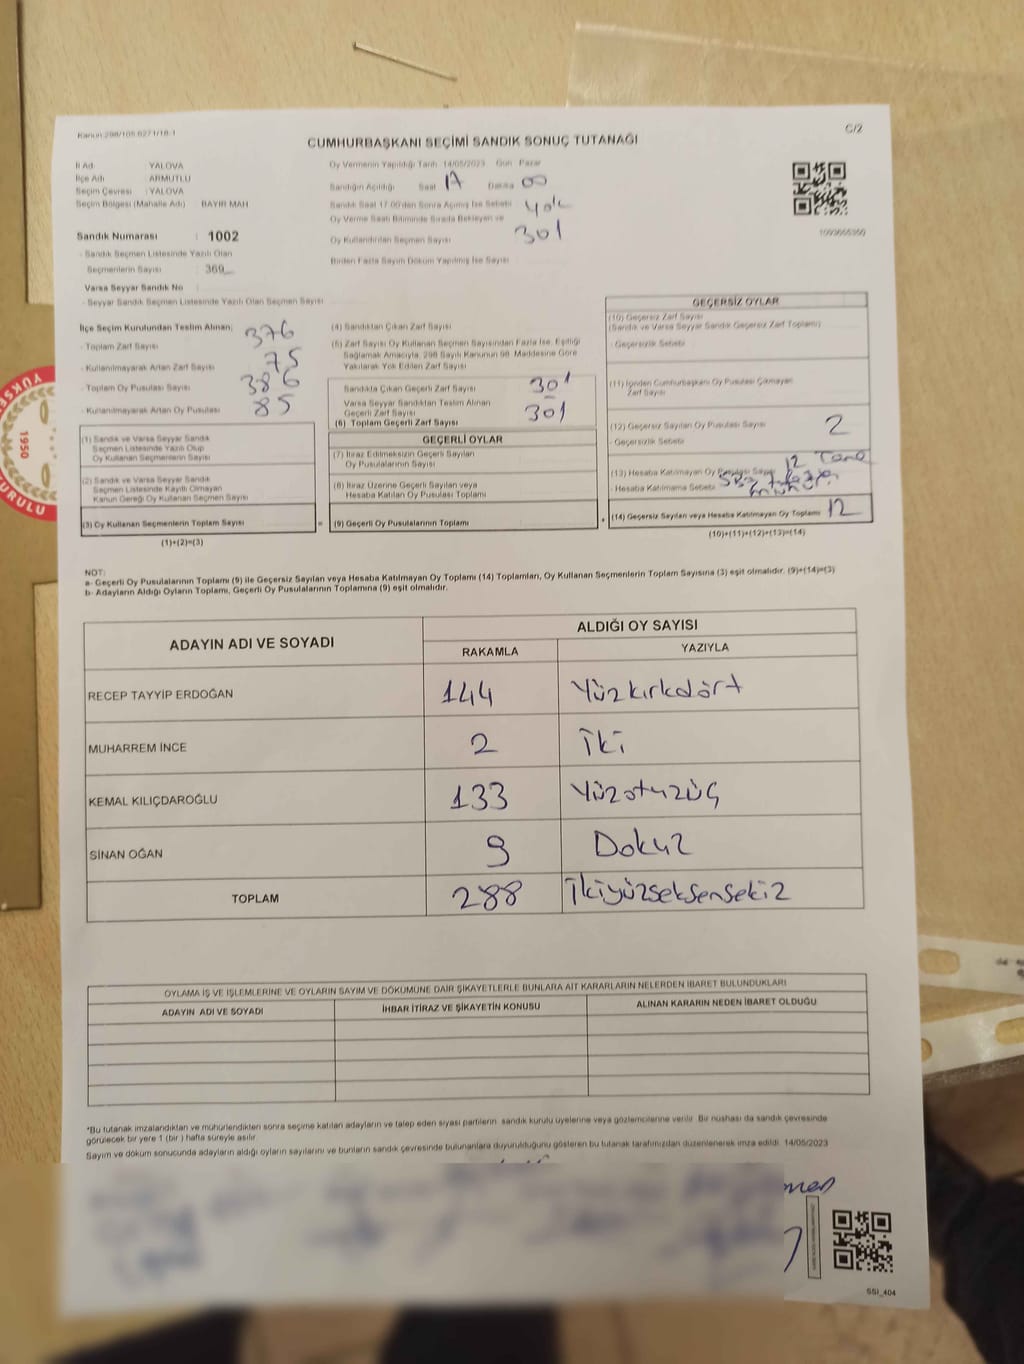 Kanun:298/105,6271/18-1
C/2
CUMHURBAŞKANI SEÇİMİ SANDIK SONUÇ TUTANAĞI
İl Adı : YALOVA
İlçe Adı : ARMUTLU
Seçim Çevresi : YALOVA
Seçim Bölgesi (Mahalle Adı) : BAYIR MAH
Sandık Numarası : 1002
- Sandık Seçmen Listesinde Yazılı Olan
Seçmenlerin Sayısı : 369
Varsa Seyyar Sandık No
- Seyyar Sandık Seçmen Listesinde Yazılı Olan Seçmen Sayısı
Oy Vermenin Yapıldığı Tarih 14/05/2023 Gün Pazar
Sandığın Açıldığı Saat 17 Dakika 00
Sandık Saat 17.00'den Sonra Açılmış İse Sebebi Yok
Oy Verme Saati Bitiminde Sırada Bekleyen ve
Oy Kullandırılan Seçmen Sayısı 301
Birden Fazla Sayım Döküm Yapılmış İse Sayısı
1093665350
İlçe Seçim Kurulundan Teslim Alınan;
- Toplam Zarf Sayısı 376
- Kullanılmayarak Artan Zarf Sayısı 75
- Toplam Oy Pusulası Sayısı 386
- Kullanılmayarak Artan Oy Pusulası 85
(1) Sandık ve Varsa Seyyar Sandık
Seçmen Listesinde Yazılı Olup
Oy Kullanan Seçmenlerin Sayısı
(2) Sandık ve Varsa Seyyar Sandık
Seçmen Listesinde Kayıtlı Olmayan
Kanun Gereği Oy Kullanan Seçmen Sayısı
(3) Oy Kullanan Seçmenlerin Toplam Sayısı =
(1)+(2)=(3)
(4) Sandıktan Çıkan Zarf Sayısı
(5) Zarf Sayısı Oy Kullanan Seçmen Sayısından Fazla İse, Eşitliği
Sağlamak Amacıyla, 298 Sayılı Kanunun 98. Maddesine Göre
Yakılarak Yok Edilen Zarf Sayısı
Sandıkta Çıkan Geçerli Zarf Sayısı 301
Varsa Seyyar Sandıktan Teslim Alınan
Geçerli Zarf Sayısı 301
(6) Toplam Geçerli Zarf Sayısı
GEÇERLİ OYLAR
(7) İtiraz Edilmeksizin Geçerli Sayılan
Oy Pusulalarının Sayısı
(8) İtiraz Üzerine Geçerli Sayılan veya
Hesaba Katılan Oy Pusulası Toplamı
(9) Geçerli Oy Pusulalarının Toplamı +
GEÇERSİZ OYLAR
(10) Geçersiz Zarf Sayısı
(Sandık ve Varsa Seyyar Sandık Geçersiz Zarf Toplamı)
- Geçersizlik Sebebi
(11) İçinden Cumhurbaşkanı Oy Pusulası Çıkmayan
Zarf Sayısı
(12) Geçersiz Sayılan Oy Pusulası Sayısı 2
- Geçersizlik Sebebi
(13) Hesaba Katılmayan Oy Pusulası Sayısı 12 Tane
- Hesaba Katılmama Sebebi
(14) Geçersiz Sayılan veya Hesaba Katılmayan Oy Toplamı 12
(10)+(11)+(12)+(13)=(14)
NOT:
a- Geçerli Oy Pusulalarının Toplamı (9) ile Geçersiz Sayılan veya Hesaba Katılmayan Oy Toplamı (14) Toplamları, Oy Kullanan Seçmenlerin Toplam Sayısına (3) eşit olmalıdır. (9)+(14)=(3)
b- Adayların Aldığı Oyların Toplamı, Geçerli Oy Pusulalarının Toplamına (9) eşit olmalıdır.
ADAYIN ADI VE SOYADI
ALDIĞI OY SAYISI
RAKAMLA YAZIYLA
RECEP TAYYİP ERDOĞAN 144 Yüzkırkdört
MUHARREM İNCE 2 İki
KEMAL KILIÇDAROĞLU 133 Yüzotuzüç
SİNAN OĞAN 9 Dokuz
TOPLAM 288 İkiyüzseksensekiz
OYLAMA İŞ VE İŞLEMLERİNE VE OYLARIN SAYIM VE DÖKÜMÜNE DAİR ŞİKAYETLERLE BUNLARA AİT KARARLARIN NELERDEN İBARET BULUNDUKLARI
ADAYIN ADI VE SOYADI İHBAR İTİRAZ VE ŞİKAYETİN KONUSU ALINAN KARARIN NEDEN İBARET OLDUĞU
*Bu tutanak imzalandıktan ve mühürlendikten sonra seçime katılan adayların ve talep eden siyasi partilerin sandık kurulu üyelerine veya gözlemcilerine verilir. Bir nüshası da sandık çevresinde
görülecek bir yere 1 (bir ) hafta süreyle asılır.
Sayım ve döküm sonucunda adayların aldığı oyların sayılarını ve bunların sandık çevresinde bulunanlara duyurulduğunu gösteren bu tutanak tarafımızdan düzenlenerek imza edildi. 14/05/2023
SSI_404
1950